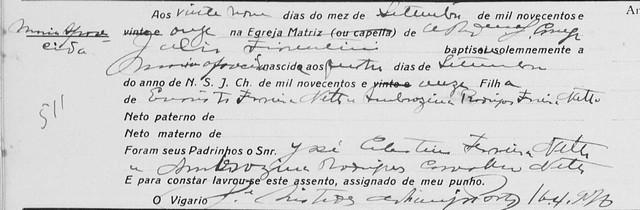 Aos vinte nove dias do mez de Setembro de mil novecentos e
vinte e onze na Egreja Matriz (ou capella) de
Maria Apare-
cida
Julio Fiorentini baptisei solemnemente a
Maria Apparecida nascida aos quatro dias de Setembro
do anno de N. S. J. Ch. de mil novecentos e vinte e onze Filha
de Evaristo Ferreira Netto e Ambrozina Rodrigues Ferreira Netto
Neto paterno de
Neto materno de
511
Foram seus Padrinhos o Snr. José Celestino Ferreira Netto
e Ambrozina Rodrigues Carvalho Netto
E para constar lavrou-se este assento, assignado de meu punho.
O Vigario